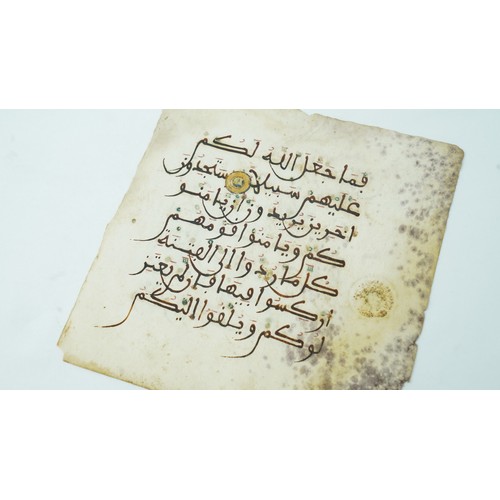 فما جعل الله لكم
عليهم سبيلا ستجدون
اخرين يريدون ان يامنو
كم ويامنوا قومهم
كل ما ردوا الى الفتنة
اركسوا فيها فان لم يعتز
لوكم ويلقوا اليكم